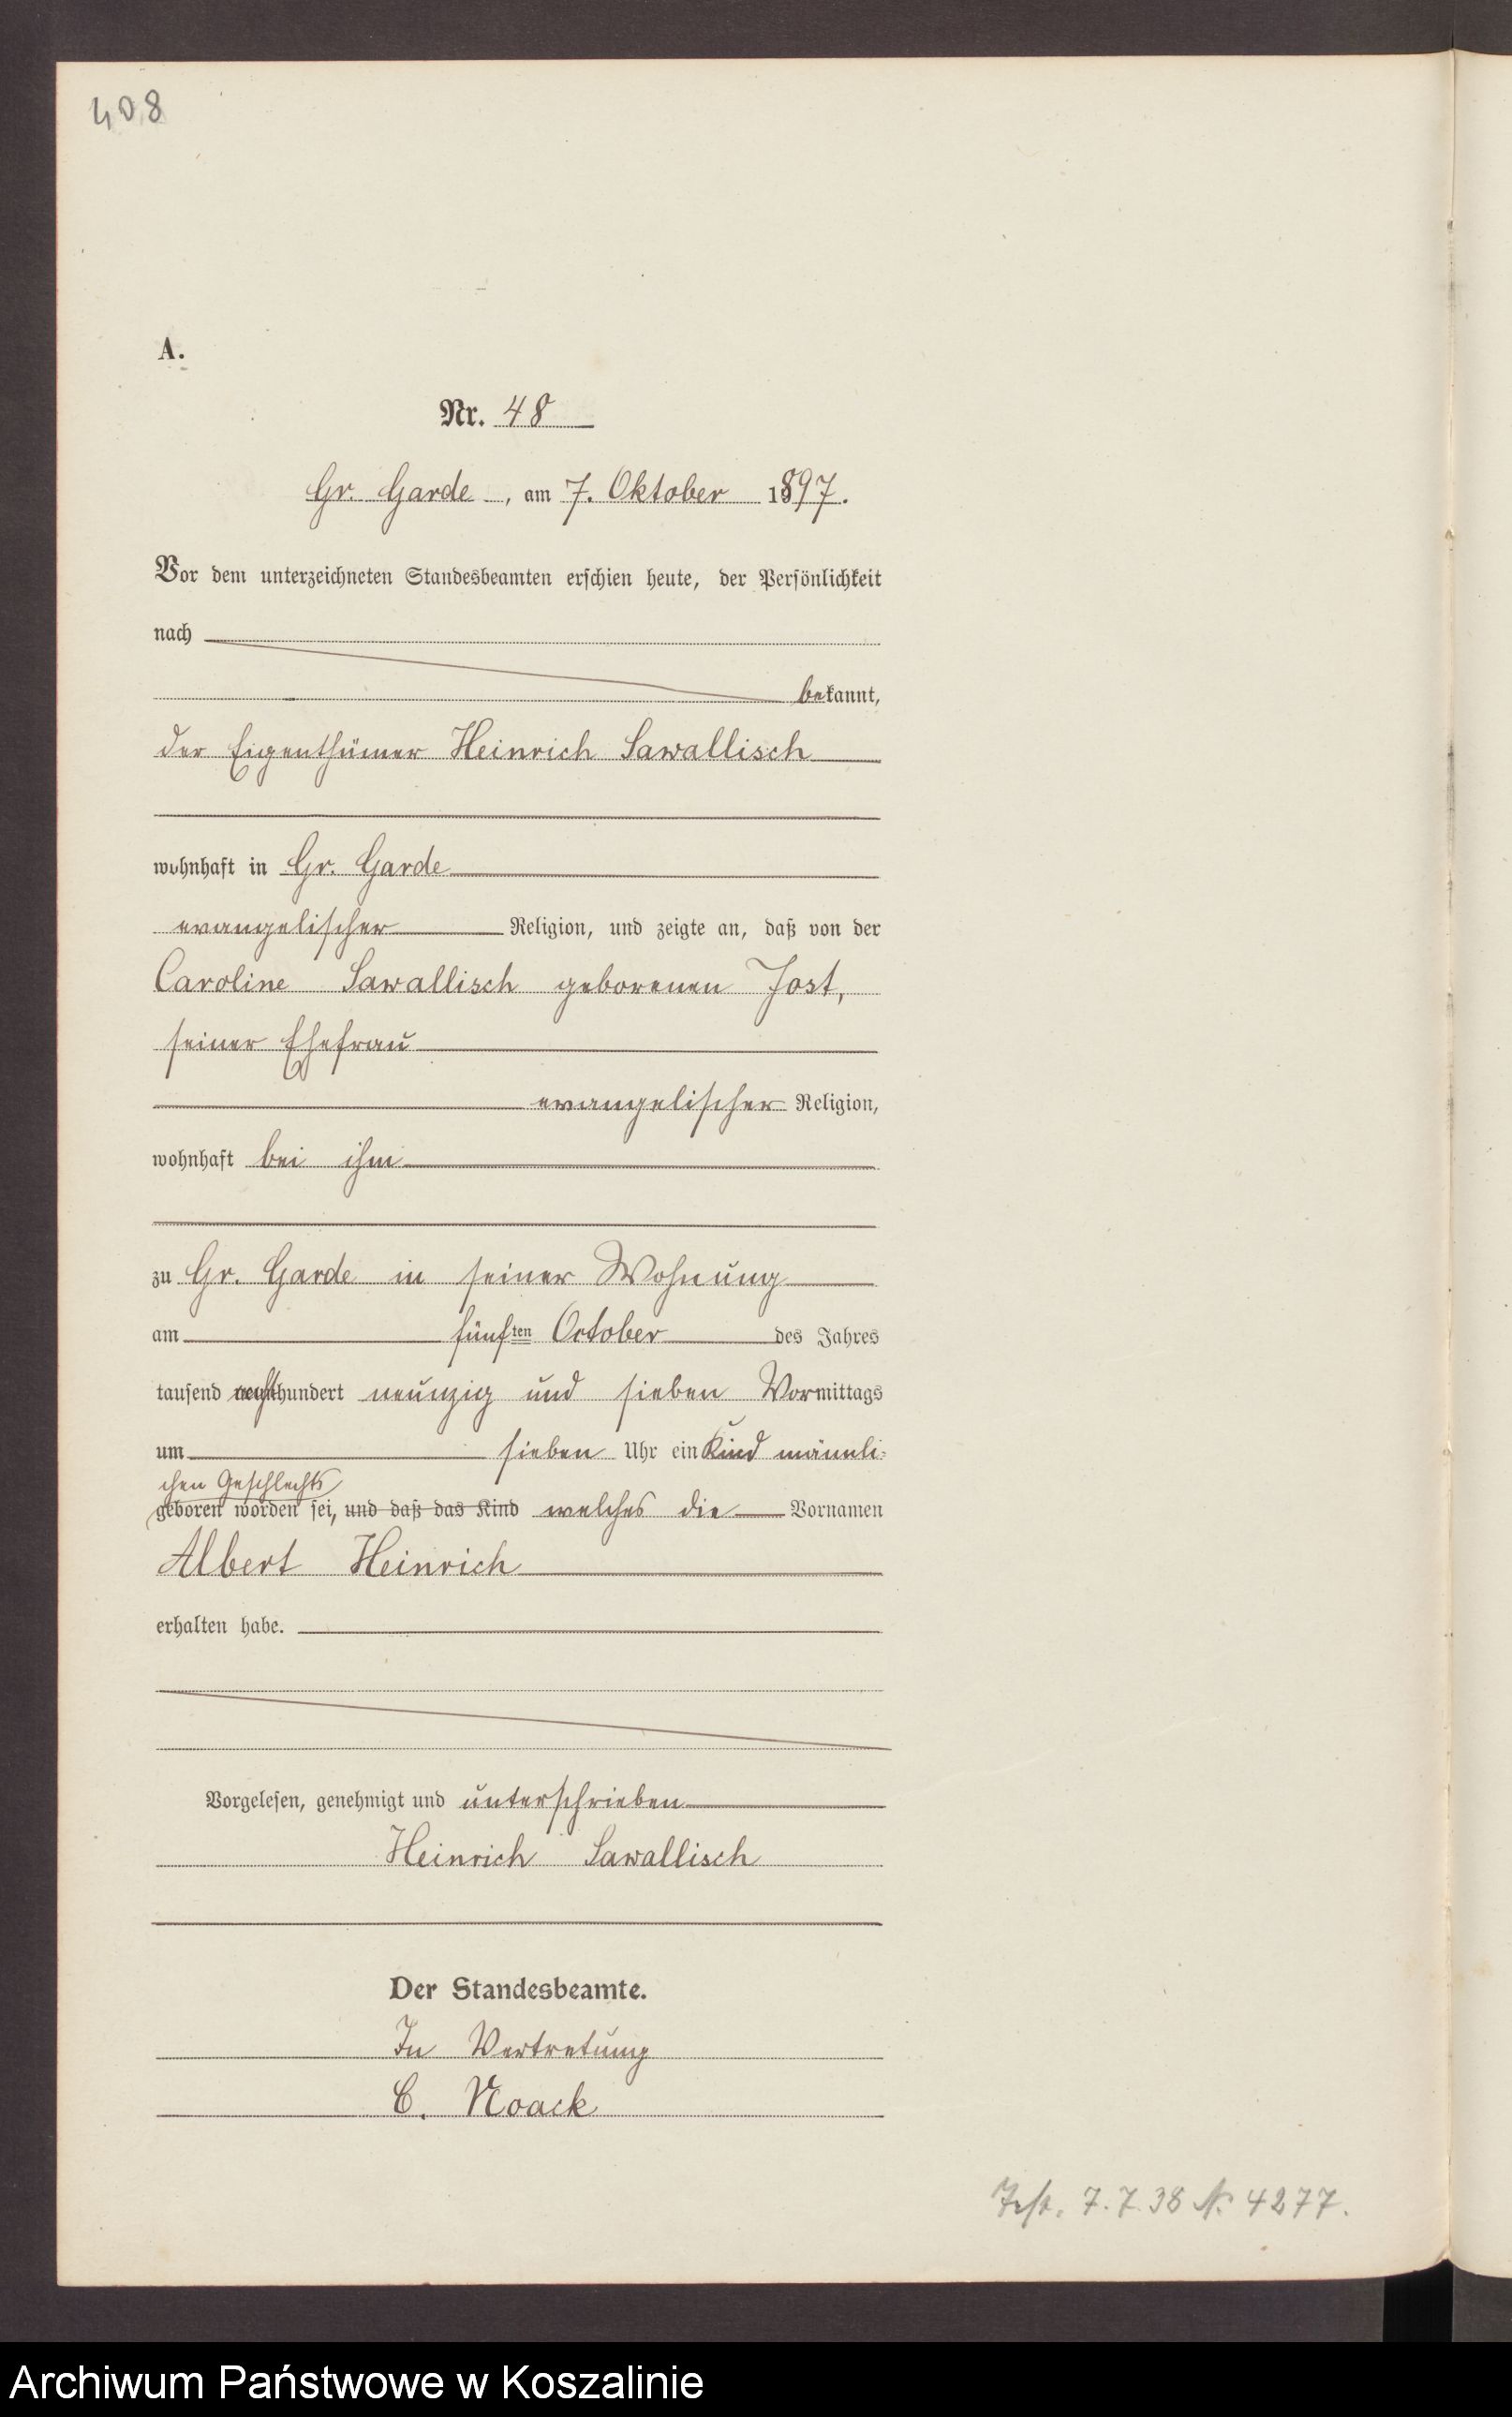 408
A.
Nr. 48
Gr. Garde, am 7. Oktober 1897.
Vor dem unterzeichneten Standesbeamten erschien heute, der Persönlichkeit
nach
bekannt,
der Eigenthümer Heinrich Sawallisch
wohnhaft in Gr. Garde
evangelischer Religion, und zeigte an, daß von der
Caroline Sawallisch geborenen Jost,
seiner Ehefrau
evangelischer Religion,
wohnhaft bei ihm
zu Gr. Garde in seiner Wohnung
am fünften October des Jahres
tausend achthundert neunzig und sieben Vormittags
um sieben Uhr ein Kind männli-
chen Geschlechts
geboren worden sei, und daß das Kind welches die Vornamen
Albert Heinrich
erhalten habe.
Vorgelesen, genehmigt und unterschrieben
Heinrich Sawallisch
Der Standesbeamte.
In Vertretung
C. Noack
7.7.38 N. 4277.
Archiwum Państwowe w Koszalinie